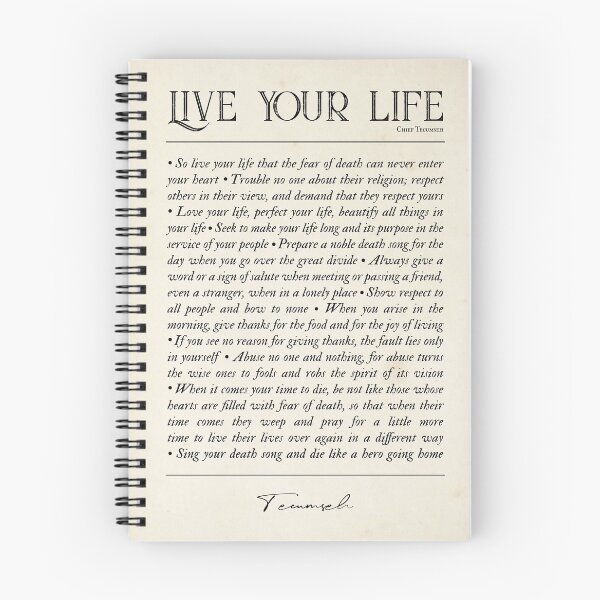 LIVE YOUR LIFE
Chief Tecumseh
• So live your life that the fear of death can never enter
your heart • Trouble no one about their religion; respect
others in their view, and demand that they respect yours
• Love your life, perfect your life, beautify all things in
your life • Seek to make your life long and its purpose in the
service of your people • Prepare a noble death song for the
day when you go over the great divide • Always give a
word or a sign of salute when meeting or passing a friend,
even a stranger, when in a lonely place • Show respect to
all people and bow to none • When you arise in the
morning, give thanks for the food and for the joy of living
• If you see no reason for giving thanks, the fault lies only
in yourself • Abuse no one and nothing, for abuse turns
the wise ones to fools and robs the spirit of its vision
• When it comes your time to die, be not like those whose
hearts are filled with fear of death, so that when their
time comes they weep and pray for a little more
time to live their lives over again in a different way
• Sing your death song and die like a hero going home
Tecumseh